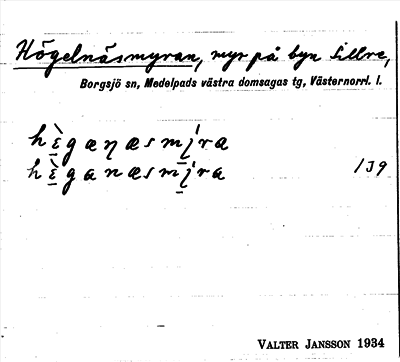 Högelnäsmyran, myr på byn Sillre,
Borgsjö sn, Medelpads västra domsagas tg, Västernorrl. l.
hɛ̀gæŋæsmi̱ra
hɛ̀ganæsmi̱ra 139
VALTER JANSSON 1934